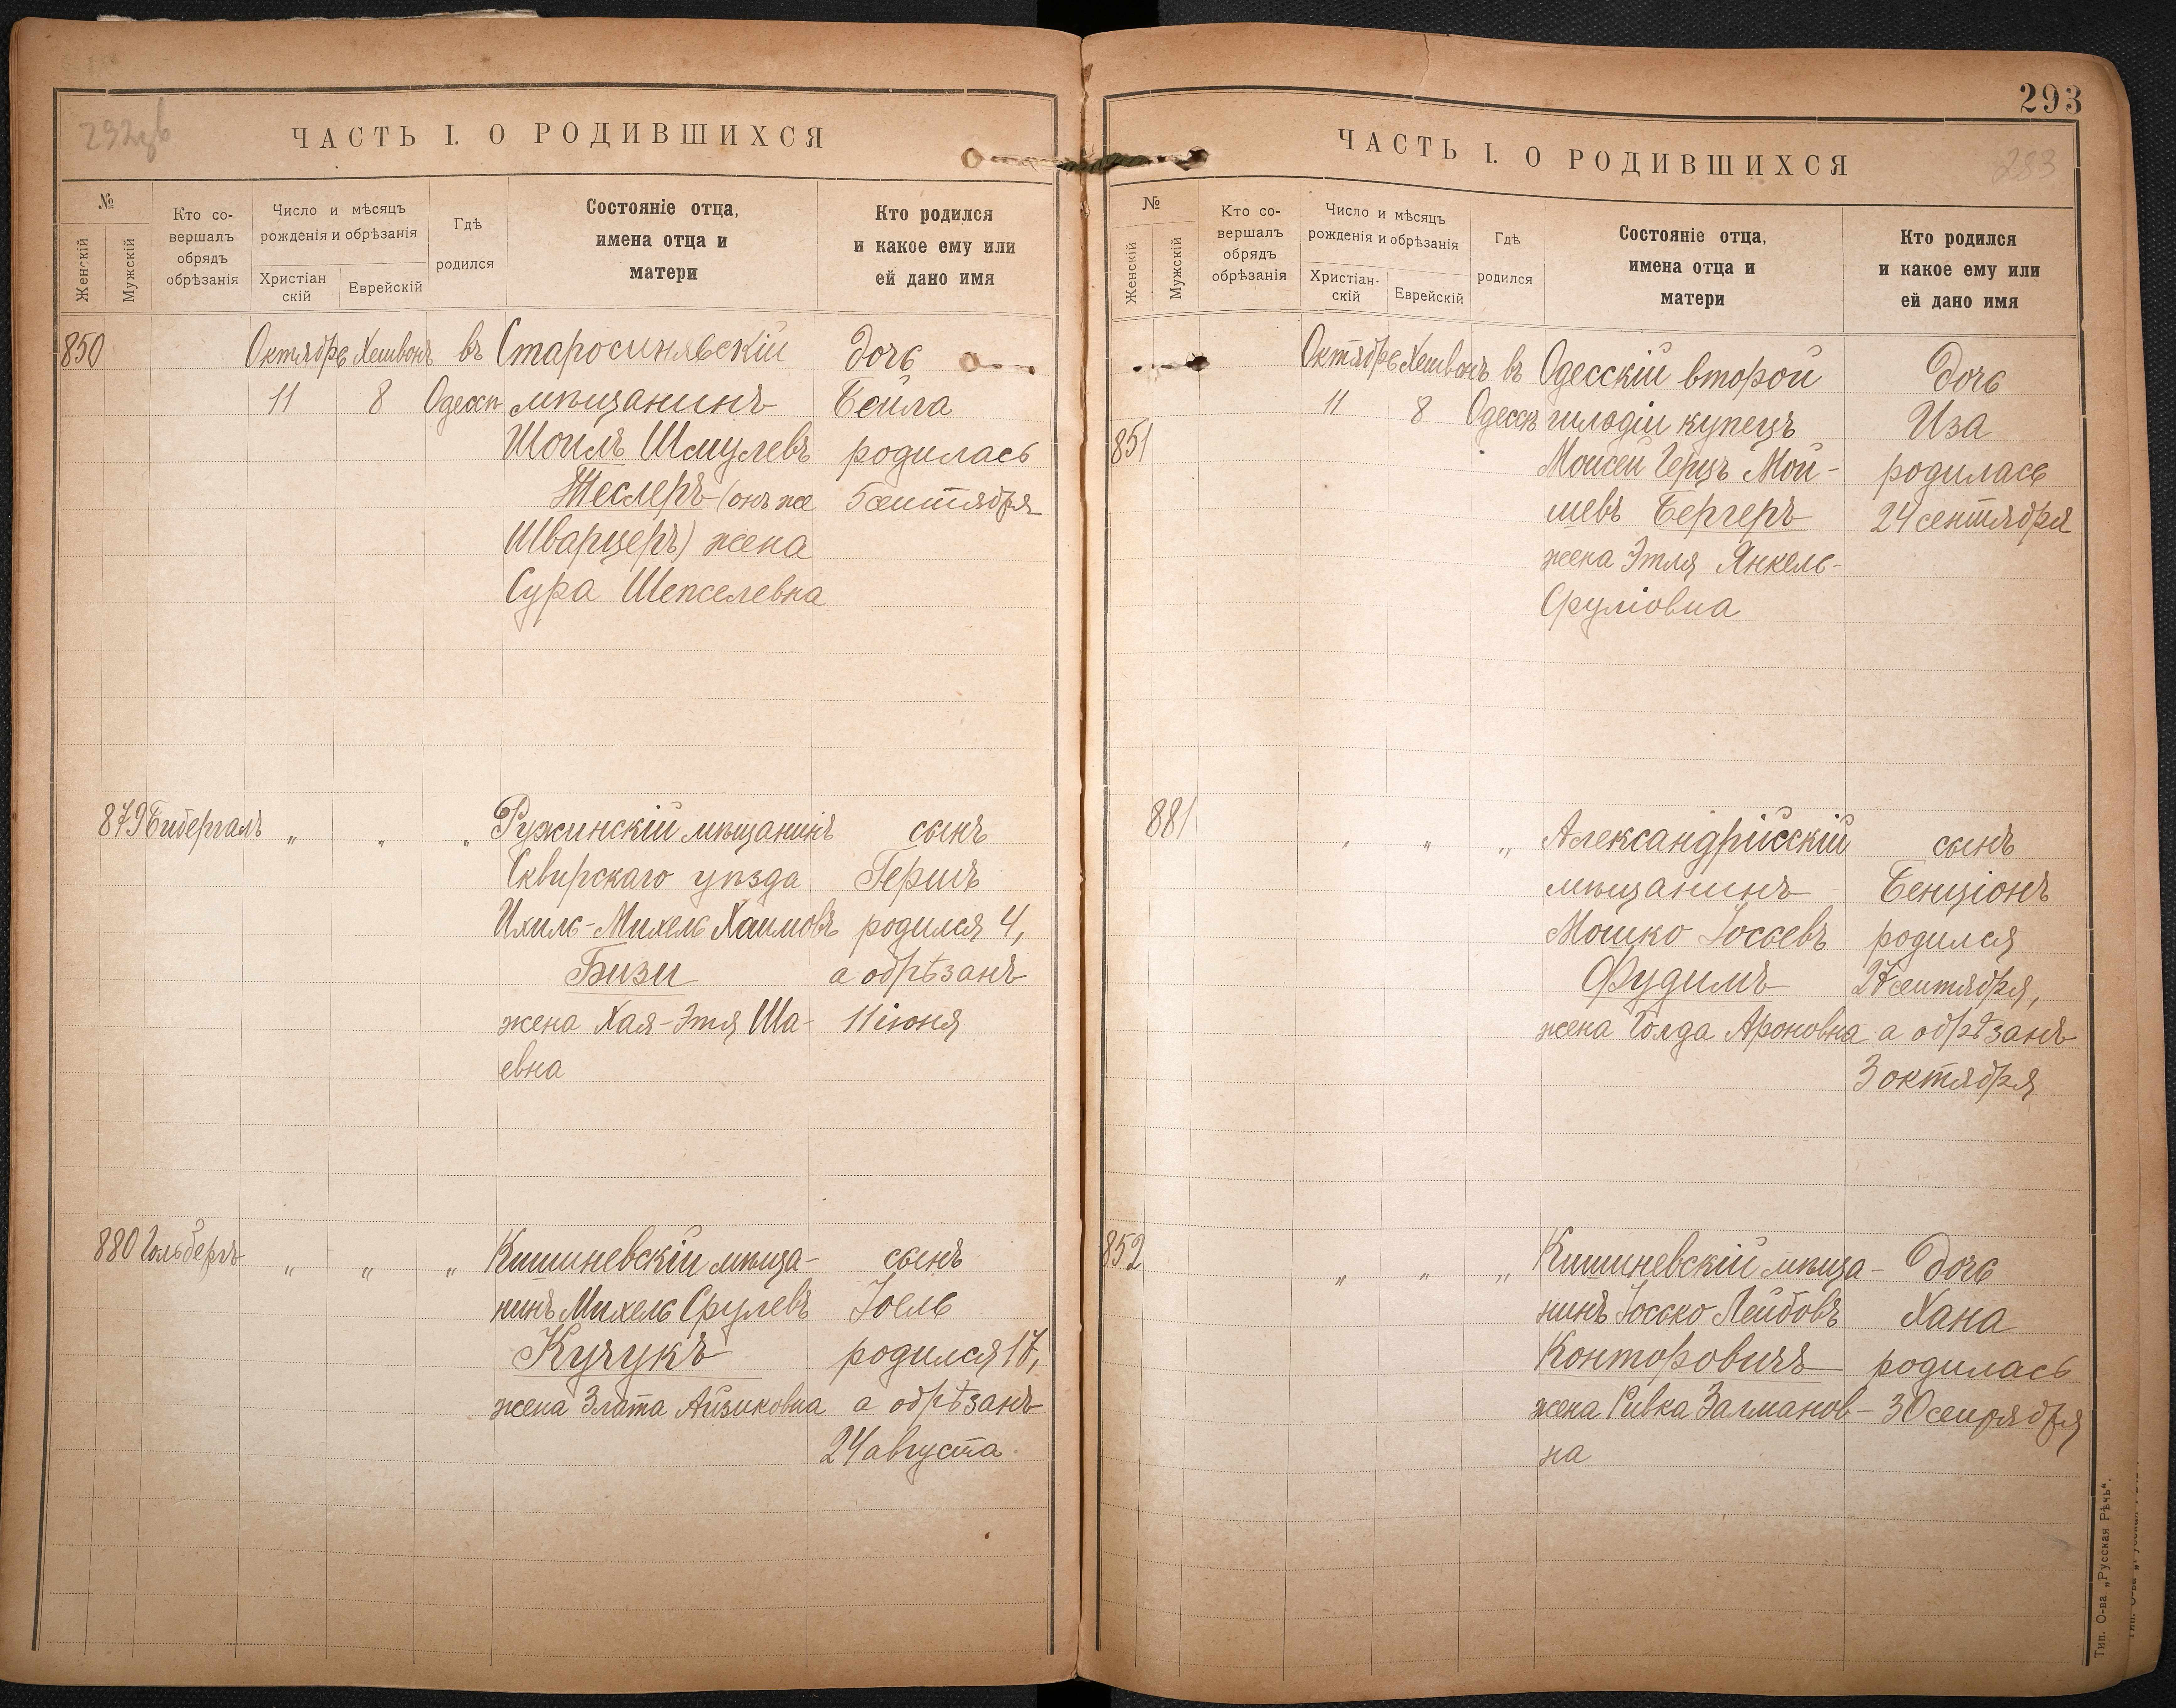 ЧАСТЬ I. О РОДИВШИХСЯ
№
Женскій
Мужскій
Кто со-
вершалъ
обрядъ
обрѣзанія
Число и мѣсяцъ
рожденія и обрѣзанія
Христіан
скій
Еврейскій
Гдѣ
родился
Состояніе отца,
имена отца и
матери
Кто родился
и какое ему или
ей дано имя
850 Октябрь Хешвонъ въ Старосинявскій дочь
11 8 Одессѣ мѣщанинъ Бейла
Шоилъ Шмулевъ родилась
Теслеръ (онъ же 5 сентября
Шварцеръ) жена
Сура Шепселевна
879 Бидергалъ " " " Ружинскій мѣщанинъ сынъ
Сквирскаго уѣзда Гершъ
Ихиль-Михель Хаимовъ родился 4,
Бизи а обрѣзанъ
жена Хая-Этя Ша- 11 іюня
евна
880 Гольбергъ " " " Кишиневскій мѣща- сынъ
нинъ Михель Срулевъ Іоель
Кучукъ родился 17,
жена Злата Айзиковна а обрѣзанъ
24 августа
293
ЧАСТЬ I. О РОДИВШИХСЯ
293
№
Женскій
Мужскій
Кто со-
вершалъ
обрядъ
обрѣзанія
Число и мѣсяцъ
рожденія и обрѣзанія
Христіан-
скій
Еврейскій
Гдѣ
родился
Состояніе отца,
имена отца и
матери
Кто родился
и какое ему или
ей дано имя
Октябрь Хешвонъ въ Одесскій второй дочь
11 8 Одессѣ гильдіи купецъ Иза
851 Моисей Герцъ Мой- родилась
шевъ Бергеръ 24 сентября
жена Этля Янкель-
Сруліовна
881 " " " Александрійскій сынъ
мѣщанинъ Бенціонъ
Мошко Іосьевъ родился
Фудимъ 27 сентября,
жена Голда Ароновна а обрѣзанъ
3 октября
852 " " " Кишиневскій мѣща- дочь
нинъ Іосько Лейбовъ Хана
Конторовичъ родилась
жена Ривка Залманов- 30 сентября
на
Тип. О-ва „Русская Рѣчь".